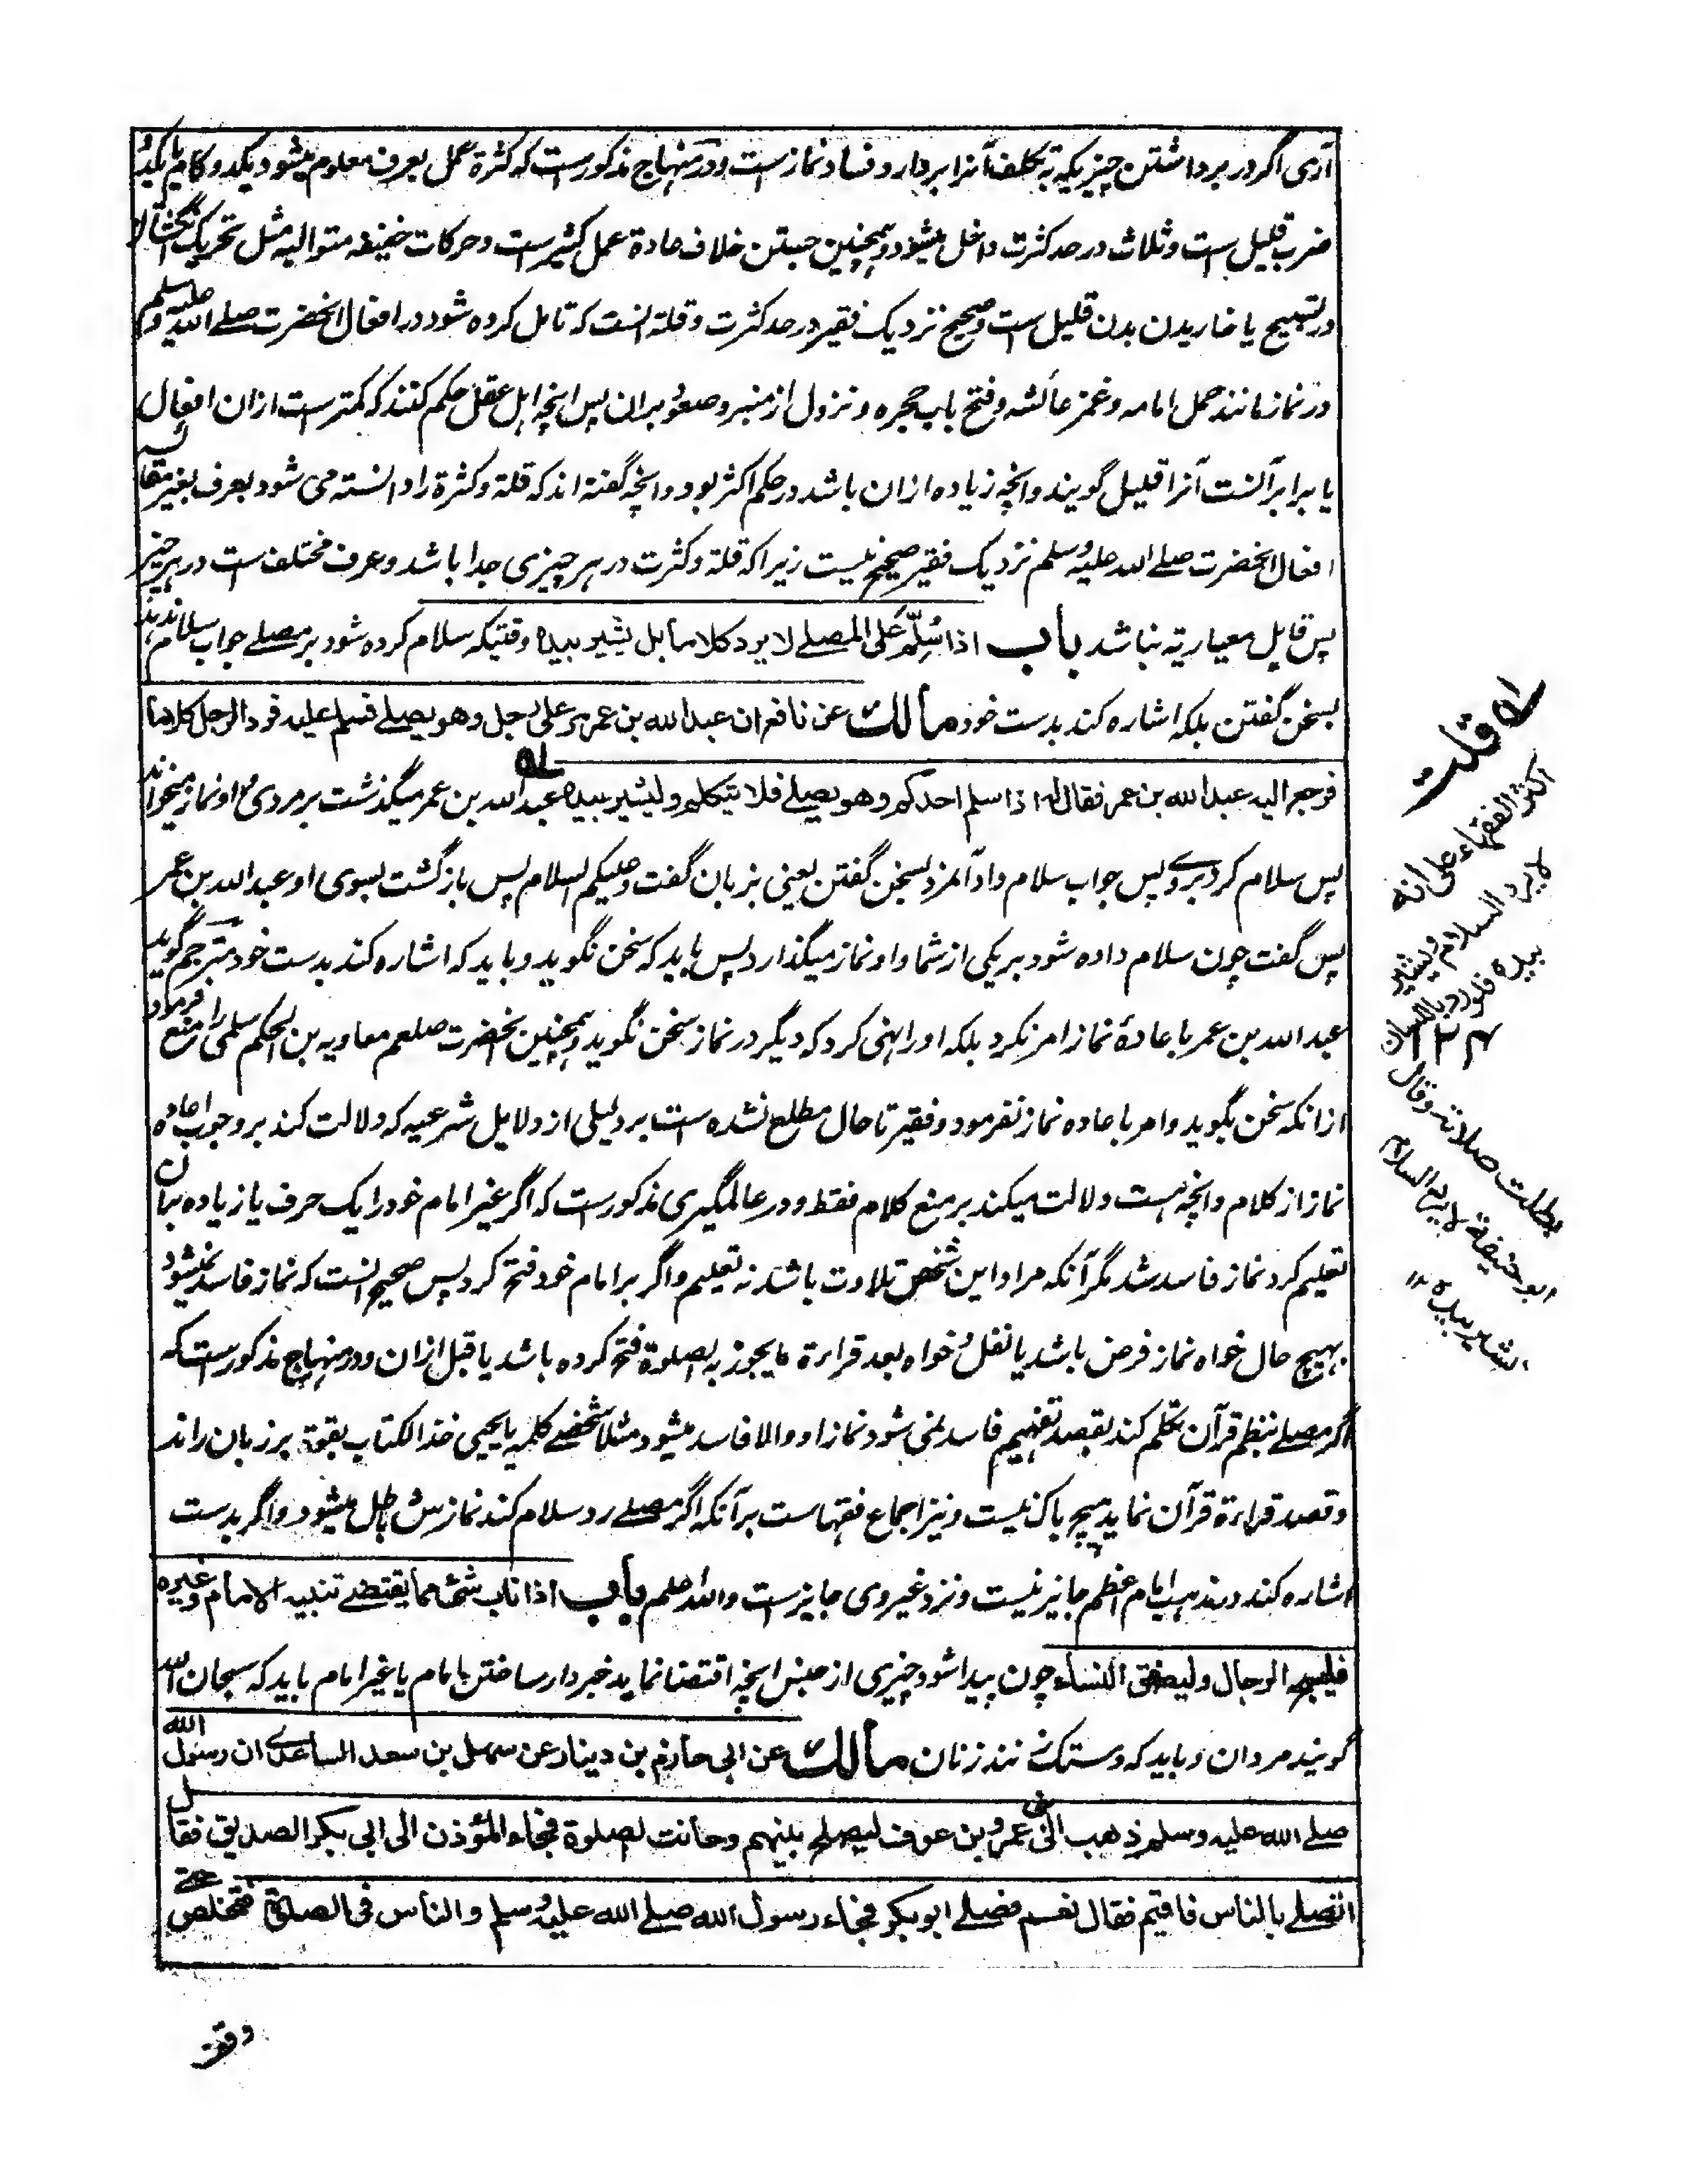 آری اگر در برداشتن چیزیکه بتکلف آنرا بردارد فساد نماز ست و در منهاج مذکور ست که کثرة عمل بعرف معلوم میشود یکدو گام یا یکدو
ضرب قلیل ست و ثلاث در حد کثرت داخل میشود و همچنین جستن خلاف عادة عمل کثیر ست و حرکات خفیفه متوالیه مثل تحریک انگشتان
در تسبیح یا خاریدن بدن قلیل ست و صحیح نزدیک فقیر در حد کثرت و قلة آنست که تامل کرده شود در افعال آنحضرت صلے الله علیه وسلم
در نماز مانند حمل امامه و غمز عائشه و فتح باب حجره و نزول از منبر و صعود بران پس آنچه اهل عقل حکم کنند که کمتر ست ازان افعال
یا برابر آنست آنرا قلیل گویند و آنچه زیاده ازان باشد در حکم اکثر بود و آنچه گفته اند که قلة و کثرة را دانسته می شود بعرف بغیر مقایس
افعال آنحضرت صلے الله علیه وسلم نزدیک فقیر صحیح نیست زیرا که قلة و کثرت در هر چیزی جدا باشد و عرف مختلف ست در هر چیز
پس قابل معیاریة نباشد باب اذا سُلِّمَ عَلی المصلے لا یرد کلاما بل یشیر بیده وقتیکه سلام کرده شود بر مصلے جواب سلام ندهد
بسخن گفتن بلکه اشاره کند بدست خود مالك عن نافع ان عبدالله بن عمر مر علی رجل وهو یصلے فسلم علیه فرد الرجل کلاما
فرجع الیه عبدالله بن عمر فقال له اذا سلم احدکم وهو یصلے فلا یتکلم ولیشیر بیده عبدالله بن عمر میگذشت بر مردی و او نماز میخواند
پس سلام کرد بروے پس جواب سلام داد آنمرد بسخن گفتن یعنی بزبان گفت وعلیکم السلام پس بازگشت بسوی او عبدالله بن عمر
پس گفت چون سلام داده شود بر یکی از شما و او نماز میگذارد پس باید که سخن نگوید و باید که اشاره کند بدست خود مترجم گوید
عبدالله بن عمر باعادهٔ نماز امر نکرد بلکه او را نهی کرد که دیگر در نماز سخن نگوید و همچنین آنحضرت صلعم معاویه بن الحکم سلمی را منع فرمود
ازانکه سخن بگوید و امر باعاده نماز نفرمود و فقیر تا حال مطلع نشده ست بر دلیلی از دلایل شرعیه که دلالت کند بر وجوب اعاده
نماز از کلام و آنچه هست دلالت میکند بر منع کلام فقط و در عالمگیری مذکور ست که اگر غیر امام خود را یک حرف یا زیاده بیان
تعلیم کرد نماز فاسد شد مگر آنکه مراد این شخص تلاوت باشد نه تعلیم و اگر بر امام خود فتح کرد پس صحیح آنست که نماز فاسد نمیشود
بهیچ حال خواه نماز فرض باشد یا نفل و خواه بعد قراءة ما یجوز به الصلوة فتح کرده باشد یا قبل ازان و در منهاج مذکور ست که
اگر مصلے بنظم قرآن تکلم کند بقصد تفهیم فاسد نمی شود نماز او و الا فاسد میشود مثلا شخصے کلمه یا یحیی خذ الکتاب بقوة بر زبان راند
و قصد قراءة قرآن نماید هیچ باک نیست و نیز اجماع فقها ست بر آنکه اگر مصلے رد سلام کند نمازش باطل میشود و اگر بدست
اشاره کند در مذهب امام اعظم جایز نیست و نزد غیر وی جایز ست والله اعلم باب اذا ناب شئ مما یقتضے تنبیه الامام وغیره
فلیسبح الرجال ولیصفق النساء چون پیدا شود چیزی از جنس آنچه اقتضا نماید خبردار ساختن بامام یا غیر امام باید که سبحان الله
گویند مردان و باید که دستک زنند زنان مالك عن ابی حازم بن دینار عن سهل بن سعد الساعدے ان رسول الله
صلے الله علیه وسلم ذهب الی بنی عمرو بن عوف لیصلح بینهم وحانت الصلوة فجاء المؤذن الی ابی بکر الصدیق فقال
اتصلے بالناس فاقیم فقال نعم فصلے ابو بکر فجاء رسول الله صلے الله علیه وسلم والناس فی الصلوة فتخلص حتے
وقف
له قلت
اکثر الفقهاء علی انه
لا یرد السلام ویشیر
بیده فلو رد باللسان
بطلت صلاته وقال
ابو حنیفة لا یرد السلام